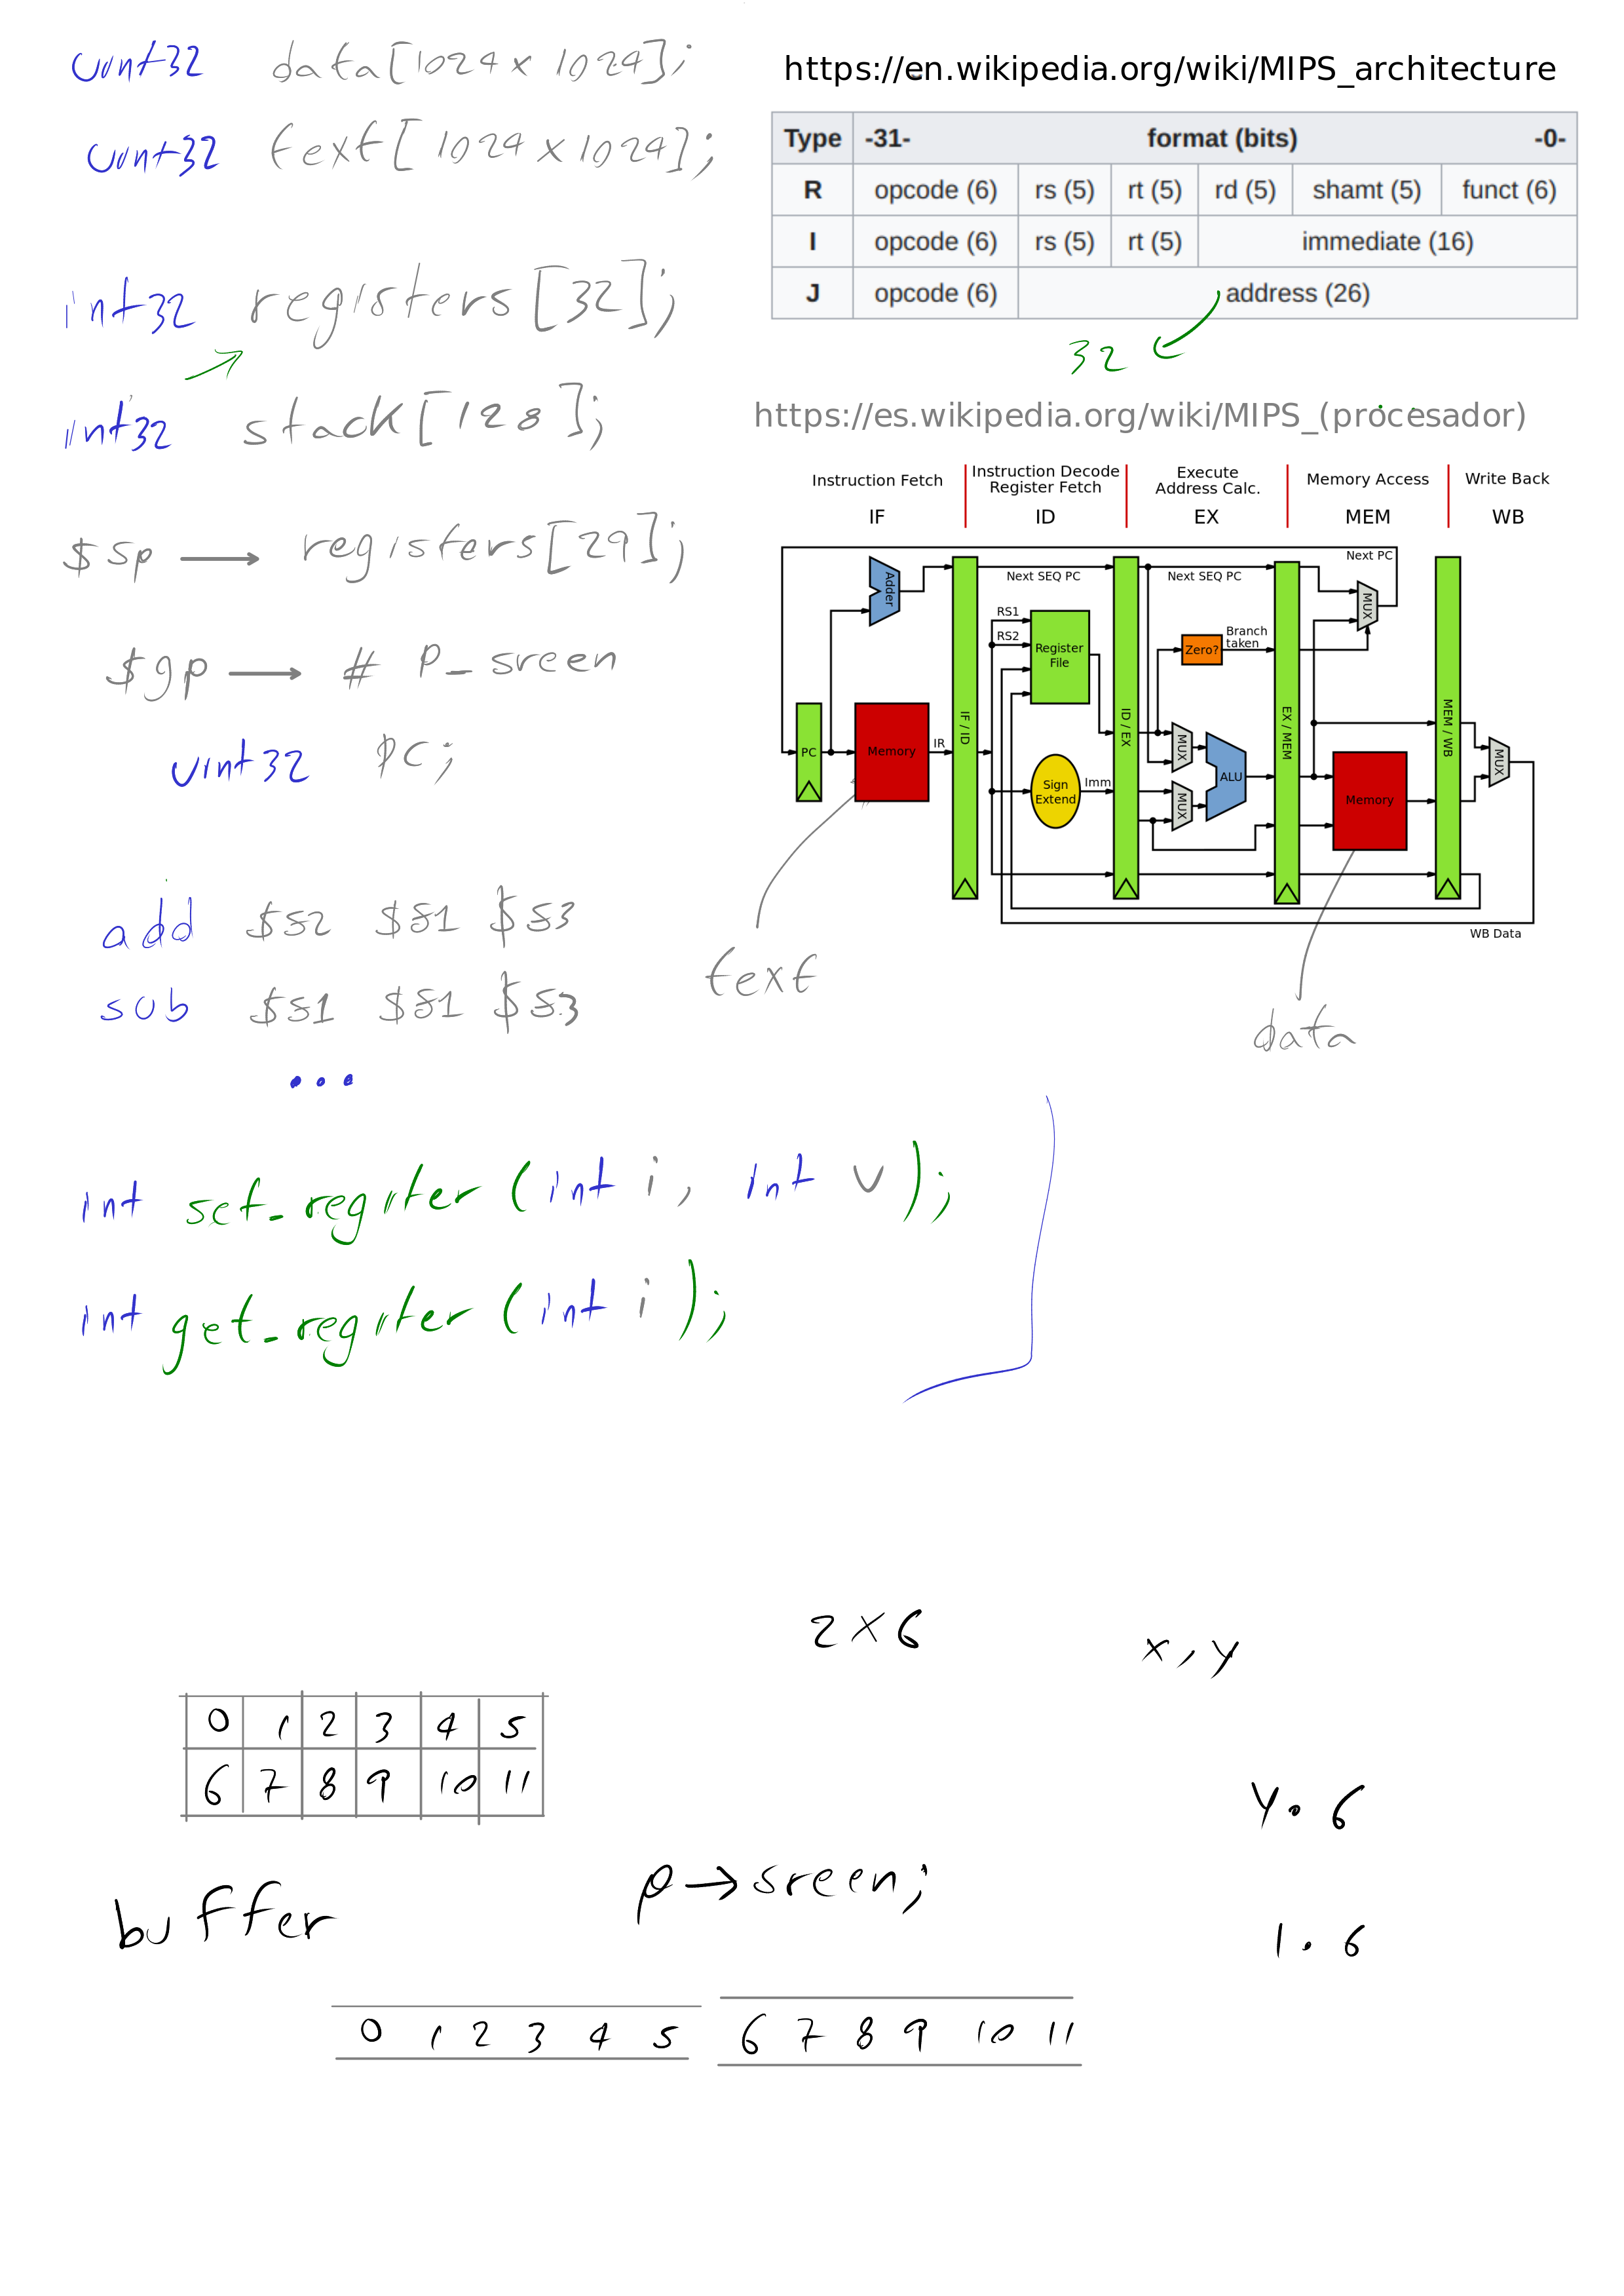 uint32 data[1024 x 1024];
uint32 text[1024 x 1024];
int32 registers[32];
int32 stack[128];
$sp → registers[29];
$gp → # P_sreen
uint32 PC;
add $s2 $s1 $s3
sub $s1 $s1 $s3
...
int set_register (int i, int v);
int get_register (int i);
https://en.wikipedia.org/wiki/MIPS_architecture
Type -31- format (bits) -0-
R opcode (6) rs (5) rt (5) rd (5) shamt (5) funct (6)
I opcode (6) rs (5) rt (5) immediate (16)
J opcode (6) address (26)
32
https://es.wikipedia.org/wiki/MIPS_(procesador)
Instruction Fetch
IF
Instruction Decode
Register Fetch
ID
Execute
Address Calc.
EX
Memory Access
MEM
Write Back
WB
Next PC
Adder
Next SEQ PC
Next SEQ PC
MUX
RS1
RS2
Register
File
Branch
taken
Zero?
IF / ID
ID / EX
EX / MEM
MEM / WB
PC
Memory
IR
MUX
ALU
MUX
MUX
Sign
Extend
Imm
Memory
WB Data
text
data
2 x 6
x, y
0 1 2 3 4 5
6 7 8 9 10 11
y • 6
buffer
p → sreen;
1 • 6
0 1 2 3 4 5 6 7 8 9 10 11